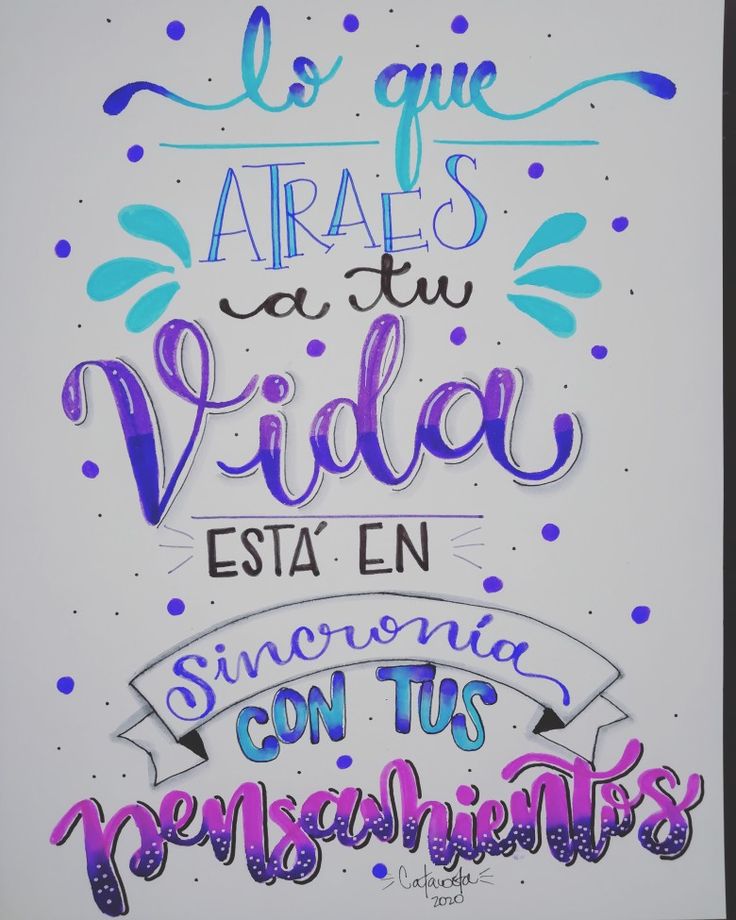 lo que
ATRAES
a tu
Vida
ESTÁ EN
Sincronía
CON TUS
pensamientos
2020